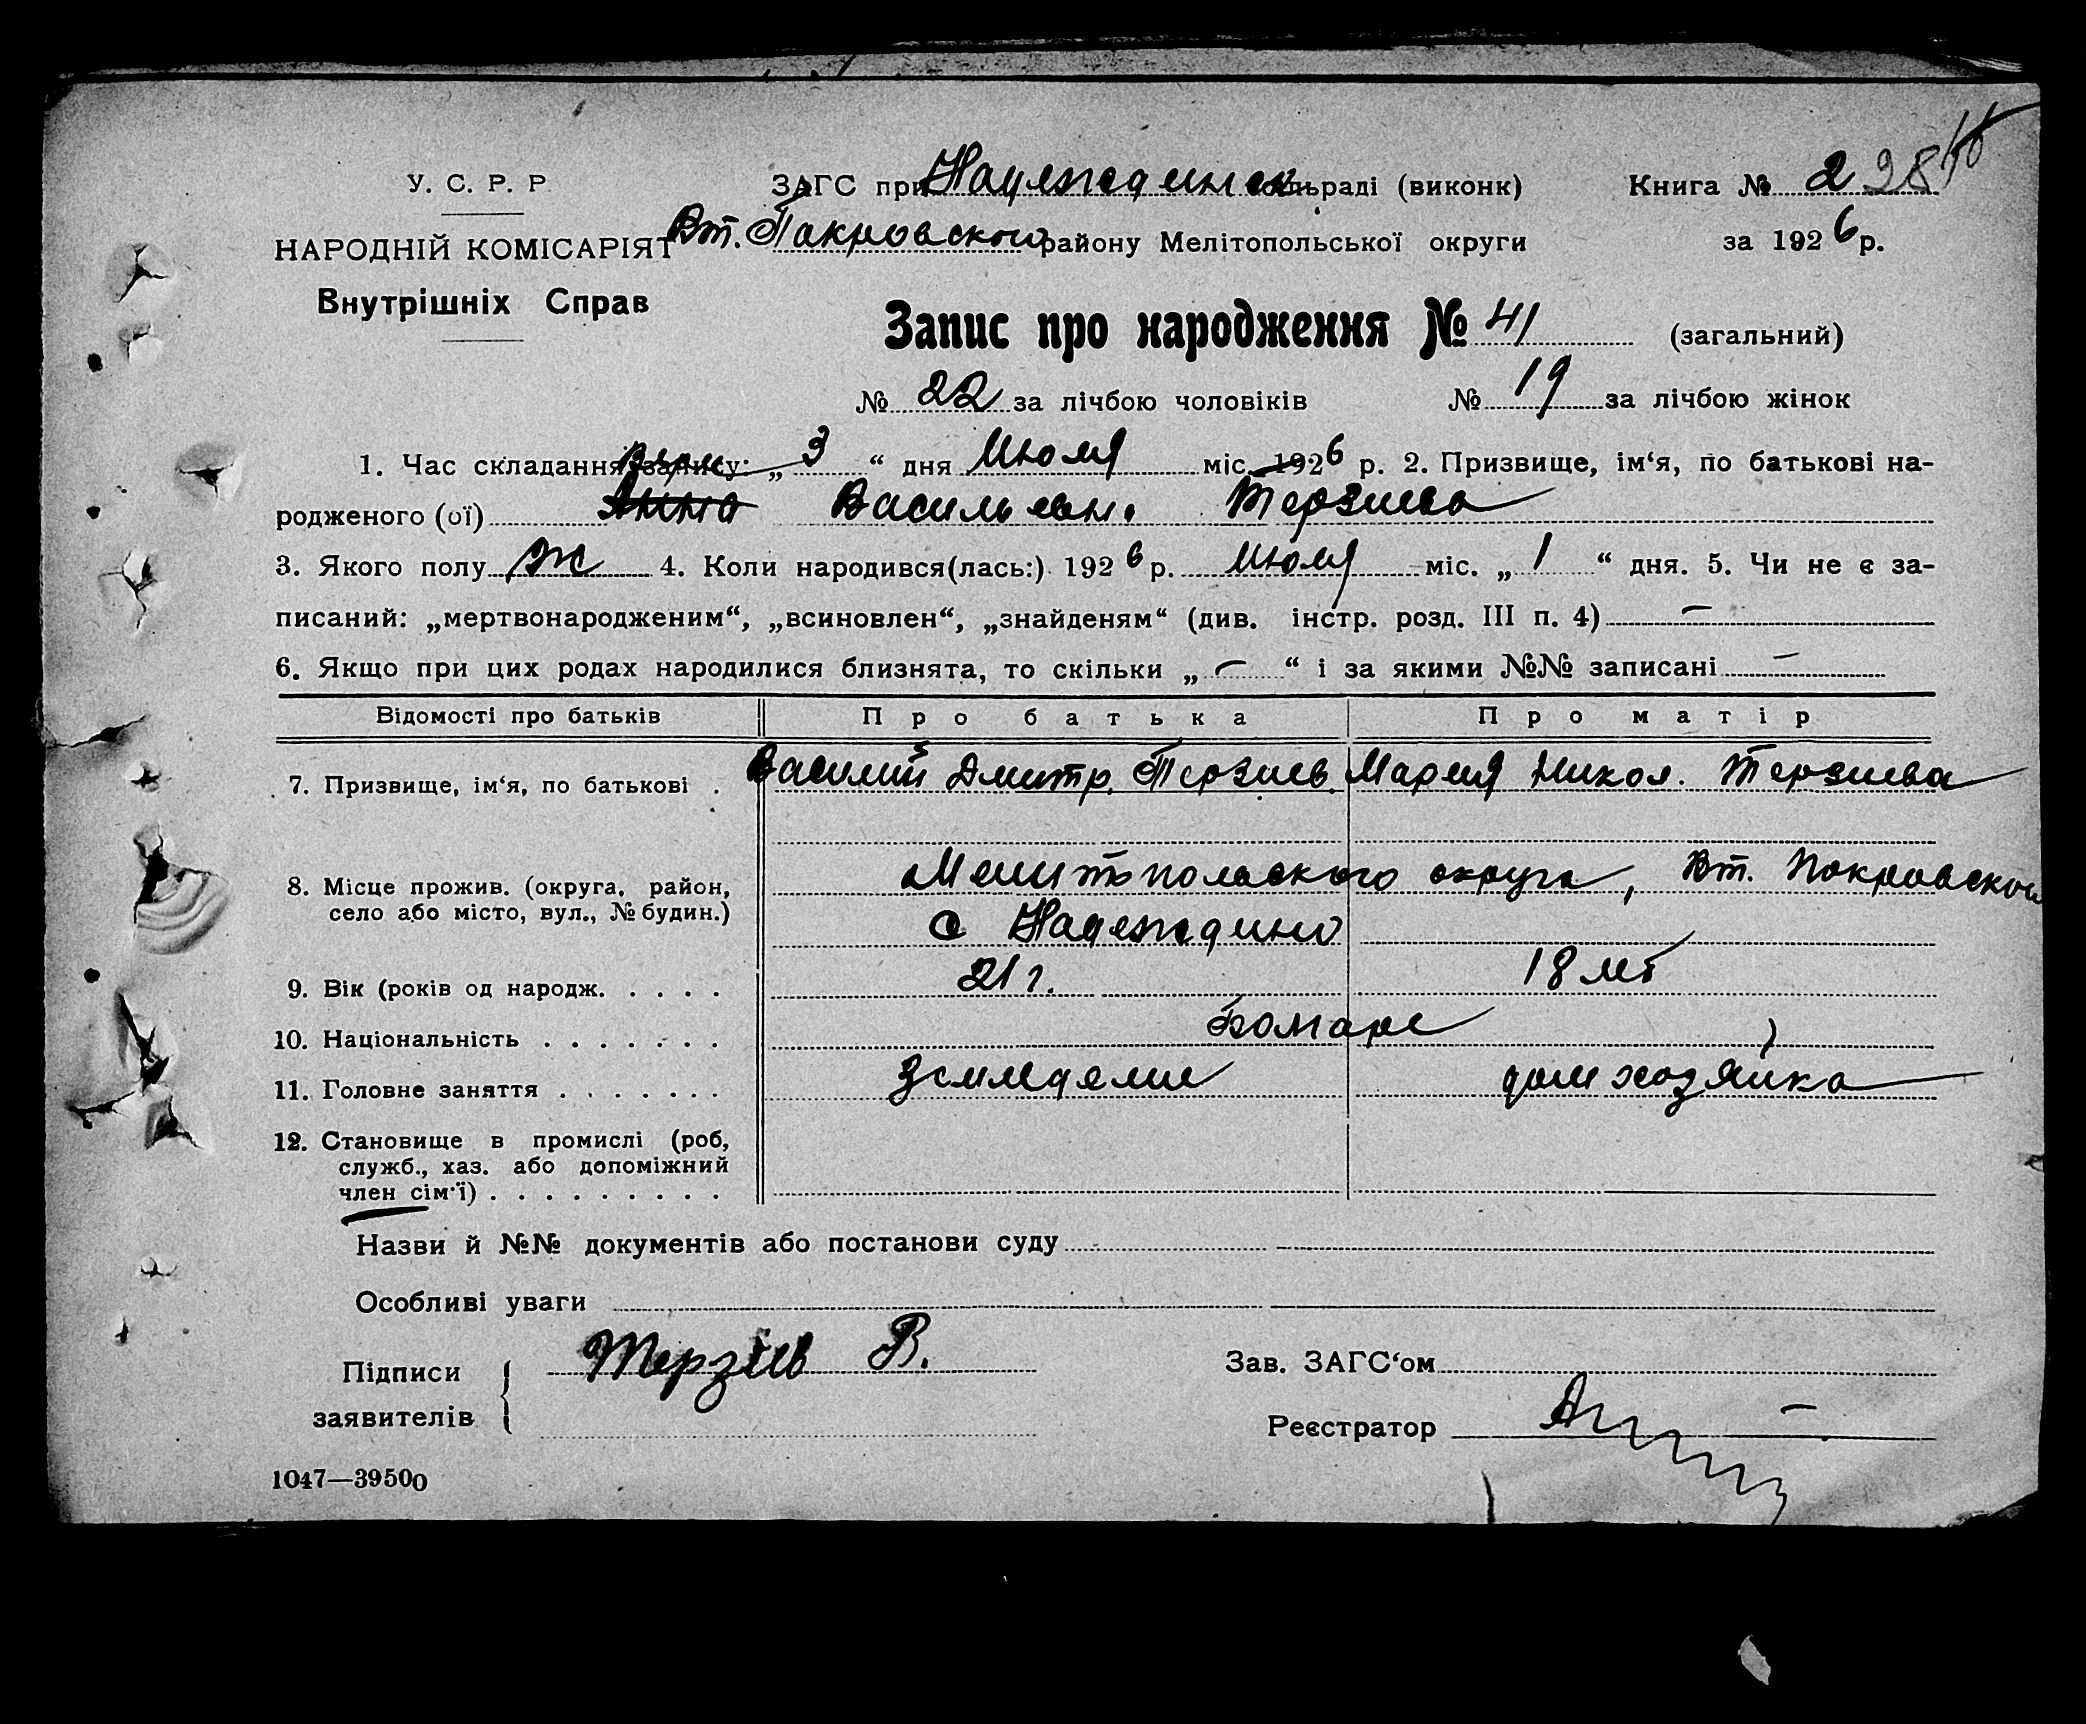 У. С. Р. Р
НАРОДНІЙ КОМІСАРІЯТ
Внутрішніх Справ
ЗАГС при Надеждинск. сільраді (виконк)
Вт. Покровского району Мелітопольської округи
Книга № 2 28
за 1926 р.
Запис про народження № 41 (загальний)
№ 22 за лічбою чоловіків № 19 за лічбою жінок
1. Час складання запису: „3“ дня Июля міс. 1926 р. 2. Призвище, ім‘я, по батькові на-
родженого (ої) Анна Васильевн. Терзиева
3. Якого полу Ж 4. Коли народився(лась:) 1926 р. Июля міс. „1“ дня. 5. Чи не є за-
писаний: „мертвонародженим“, „всиновлен“, „знайденям“ (див. інстр. розд. III п. 4) —
6. Якщо при цих родах народилися близнята, то скільки „—“ і за якими №№ записані —
Відомості про батьків Про батька Про матір
7. Призвище, ім‘я, по батькові . Василий Дмитр. Терзиев. Мария Никол. Терзиева
8. Місце прожив. (округа, район, Мелитопольского округа, Вт. Покровского
село або місто, вул., № будин.) с Надеждино
9. Вік (років од народж. . . . . 21 г. 18 лет
10. Національність . . . . . . . Болгаре
11. Головне заняття . . . . . . . Земледелие дом хозяйка
12. Становище в промислі (роб,
служб., хаз. або допоміжний
член сім‘ї) . . . . . . . . .
Назви й №№ документів або постанови суду
Особливі уваги
Підписи
заявителів
Терзіев В.
Зав. ЗАГС‘ом
Реєстратор
1047—39500